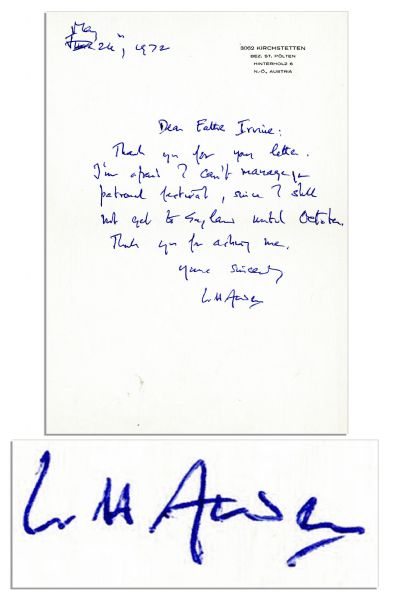 May
June 24th, 1972
3062 KIRCHSTETTEN
BEZ. ST. PÖLTEN
HINTERHOLZ 6
N.-Ö., AUSTRIA
Dear Father Irvine:
Thank you for your letter.
I'm afraid I can't manage yr
patronal festival, since I shall
not get to England until October.
Thank you for asking me.
yours sincerely
W H Auden
W H Auden